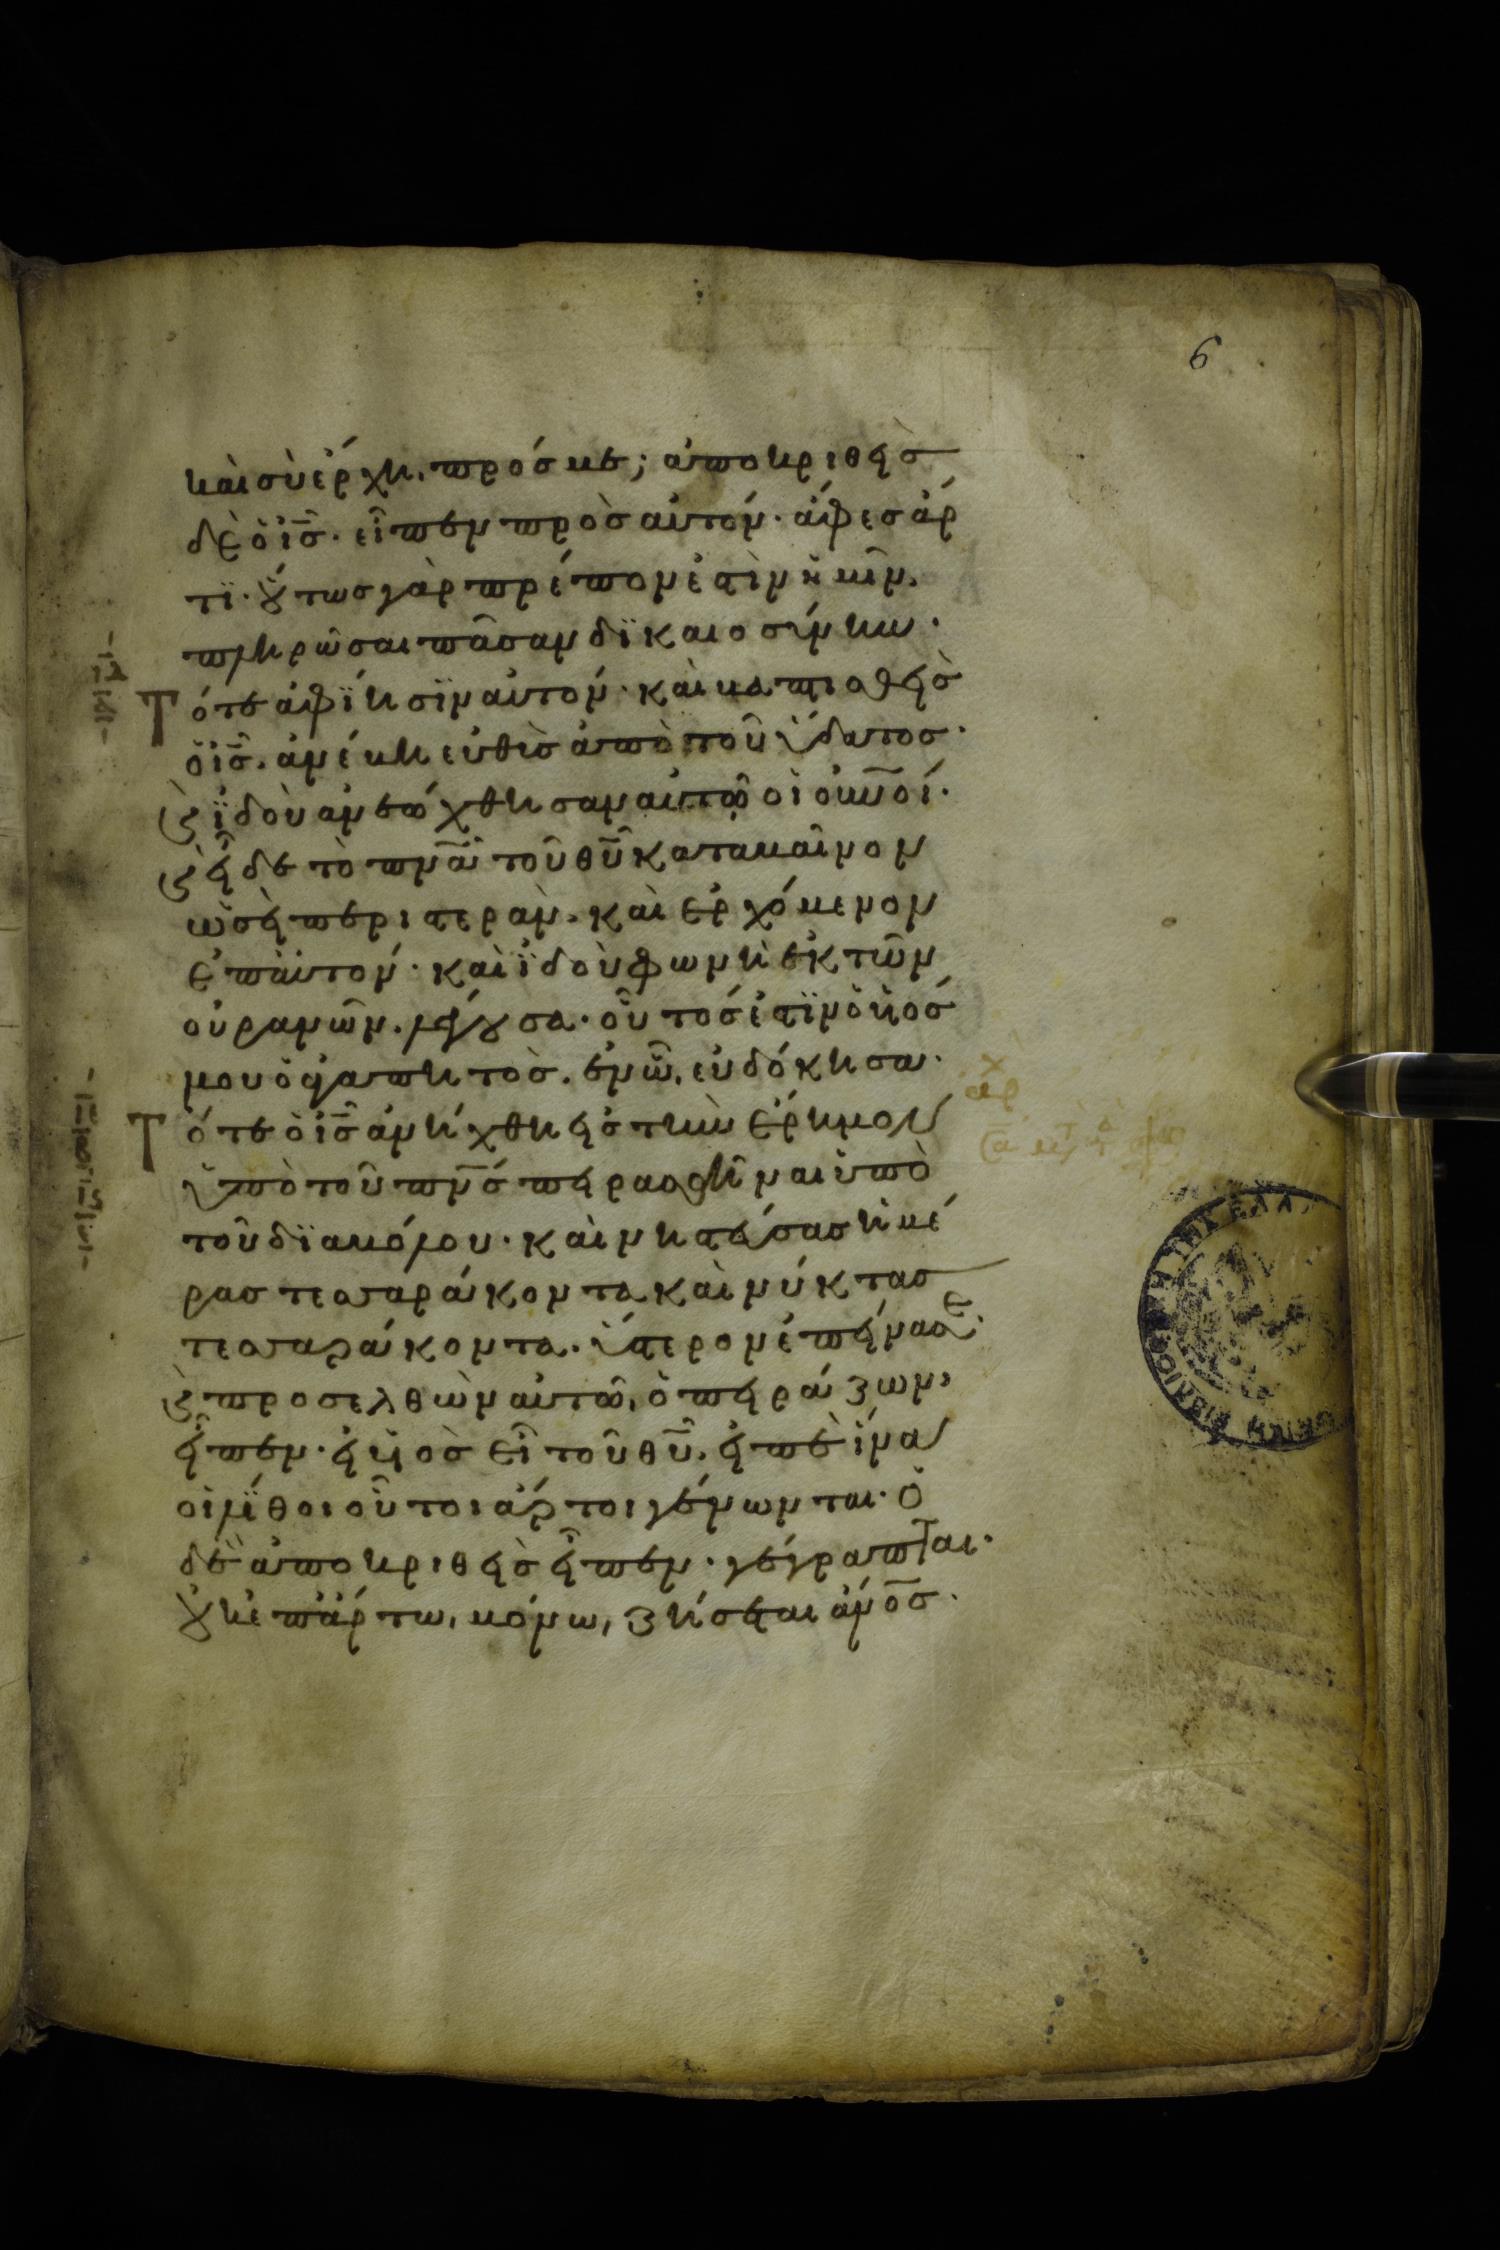 6
καὶ σὺ ἐρχη. πρόσ με; ἀποκριθεὶσ
δὲ ὁ ἰ̅σ̅. εἶπεν πρὸσ αὐτόν. ἄφεσ ἄρ
τϊ. ȣ́τωσ γὰρ πρέπον ἐστὶν ἡμῖν.
πληρῶσαι πᾶσαν δϊκαιοσύνην.
Τότε ἀφΐησϊν αὐτόν. καὶ βαπτισθεὶσ
ὁ ἰ̅σ̅. ἀνέβη εὐθὺσ ἀπὸ τοῦ ὕδατοσ.
ϗ ϊδοὺ ἀνεώχθησαν αὐτῶ οἱ ου̅νοί.
ϗ εἶδε τὸ πν̅α τοῦ θυ̅ καταβαῖνον
ὡσεὶ περιστεράν. καὶ ἐρχόμενον
ἐπ αὐτόν. καὶ ϊδοὺ φωνὴ ἐκ τῶν
οὐρανῶν. λέγȣσα. οὗτόσ ἐστϊν ὁ υἱόσ
μου ὁ ἀγαπητὸσ. ἐν ὧ, εὐδόκησα.
Τότε ὁ ἰ̅σ̅ ἀνήχθη εἰσ τὴν ἔρημον
ὑπὸ τοῦ πν̅σ πειρασθῆναι ὑπὸ
τοῦ δϊαβόλου. καὶ νηστεύσασ ἡμέ
ρασ τεσσαράκοντα καὶ νύκτασ
τεσσαράκοντα. ὕστερον ἐπείνασε.
ϗ προσελθὼν αὐτῶ, ὁ πειράζων,
εἶπεν. εἰ υἱὸσ εἶ τοῦ θυ̅. εἰπὲ ἵνα
οἱ λίθοι οὗτοι ἄρτοι γένωνται. ὁ
δὲ ἀποκριθεὶσ εἶπεν. γέγραπται.
ȣ̓κ ἐπ ἄρτω, μόνω, ζήσεται ἄν̅οσ.